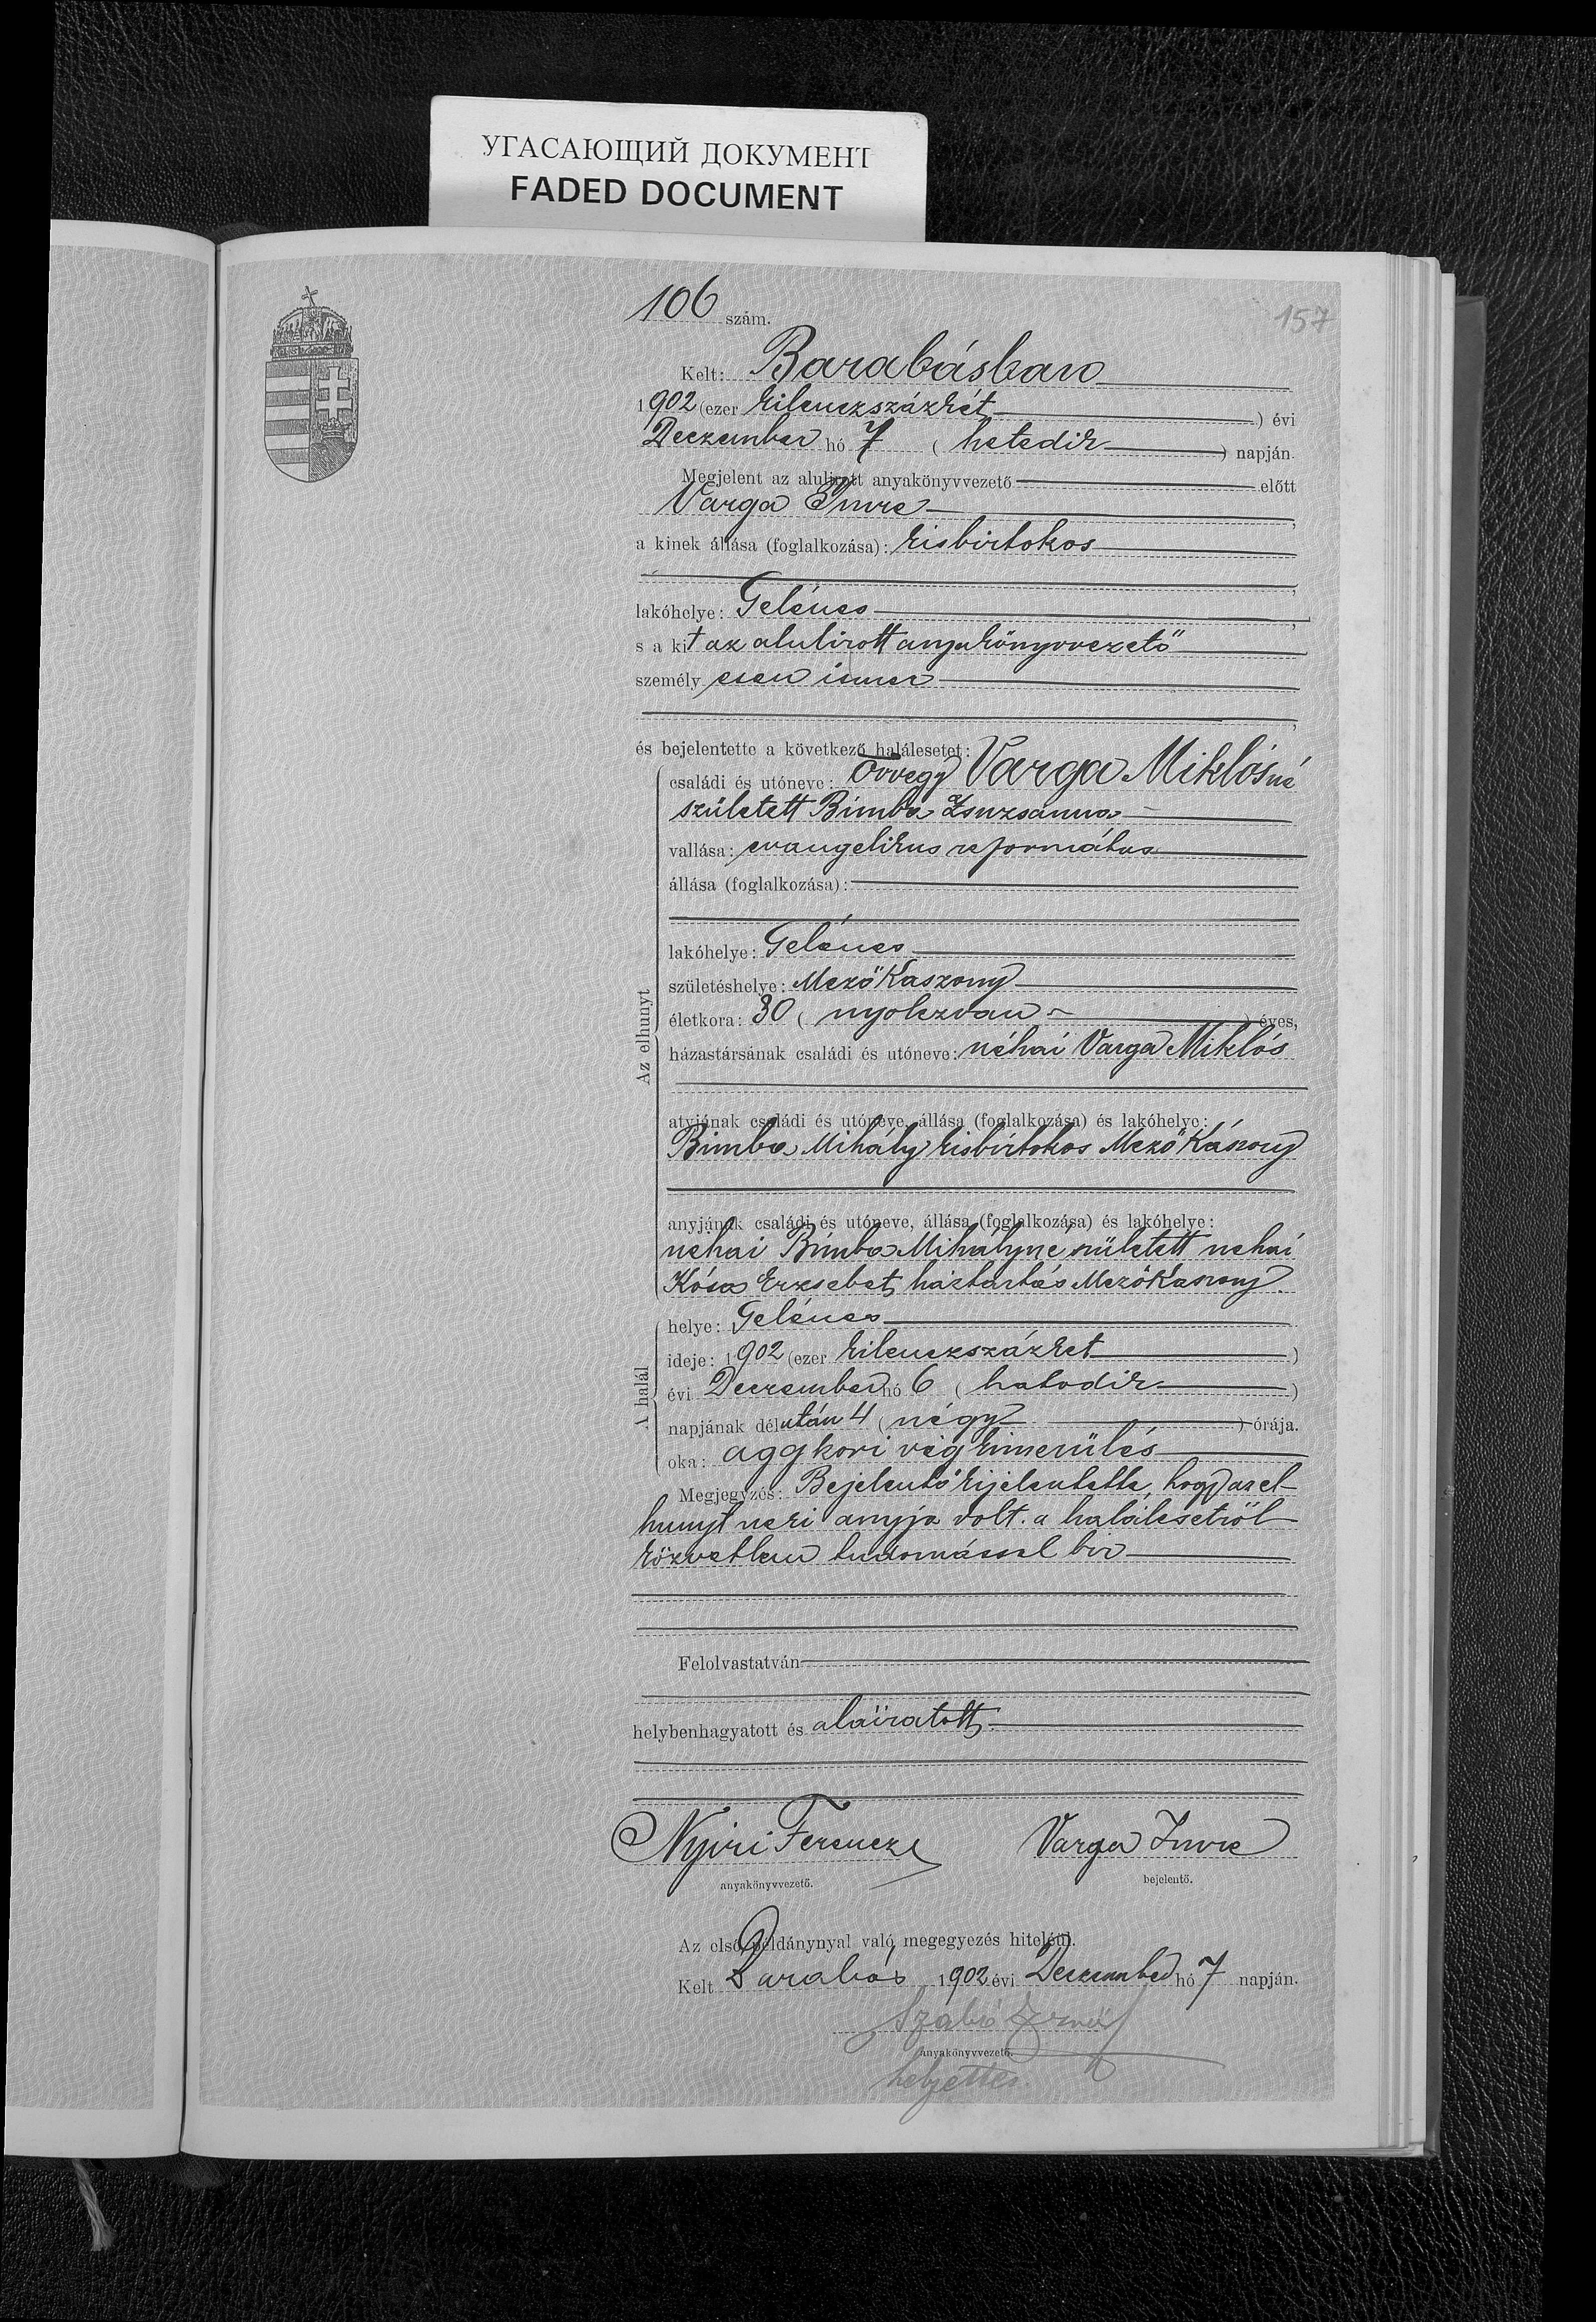 УГАСАЮЩИЙ ДОКУМЕНТ
FADED DOCUMENT
157
106 szám.
Kelt: Barabásban
1902 (ezer kilenczszázkét ) évi
Deczember hó 7 ( hetedik ) napján.
Megjelent az alulirott anyakönyvvezető előtt
Varga Imre ,
a kinek állása (foglalkozása): kisbirtokos
,
lakóhelye: Gelénes ,
s a kit az alulirott anyakönyvvezető
személy esen ismer
,
és bejelentette a következő halálesetet:
családi és utóneve: özvegy Varga Miklósné
született Bimba Zsuzsanna
vallása: evangelikus református
állása (foglalkozása):
lakóhelye: Gelénes
születéshelye: MezőKaszony
Az elhunyt
életkora: 80 ( nyolczvan ) éves,
házastársának családi és utóneve: néhai Varga Miklós
atyjának családi és utóneve, állása (foglalkozása) és lakóhelye:
Bimba Mihály kisbirtokos MezőKászony
anyjának családi és utóneve, állása (foglalkozása) és lakóhelye:
nehai Bimba Mihályné született nehai
Kósa Erzsebet, háztartás MezőKaszony.
helye: Gelénes
ideje: 1902 (ezer kilenczszázket )
A halál
évi Deczember hó 6 ( hatodik )
napjának délután 4 ( négy ) órája.
oka: aggkori végkimerülés
Megjegyzés: Bejelentő kijelentette, hogy az el-
hunyt neki anyja volt. a halálesetről
közvetlen tudomással bir
Felolvastatván
helybenhagyatott és aláiratott.
Nyiri Ferencz Varga Imre
anyakönyvvezető. bejelentő.
Az első példánynyal való megegyezés hiteléül.
Kelt Barabás 1902 évi Deczember hó 7 napján.
Szabó Ernő
anyakönyvvezető.
helyettes.